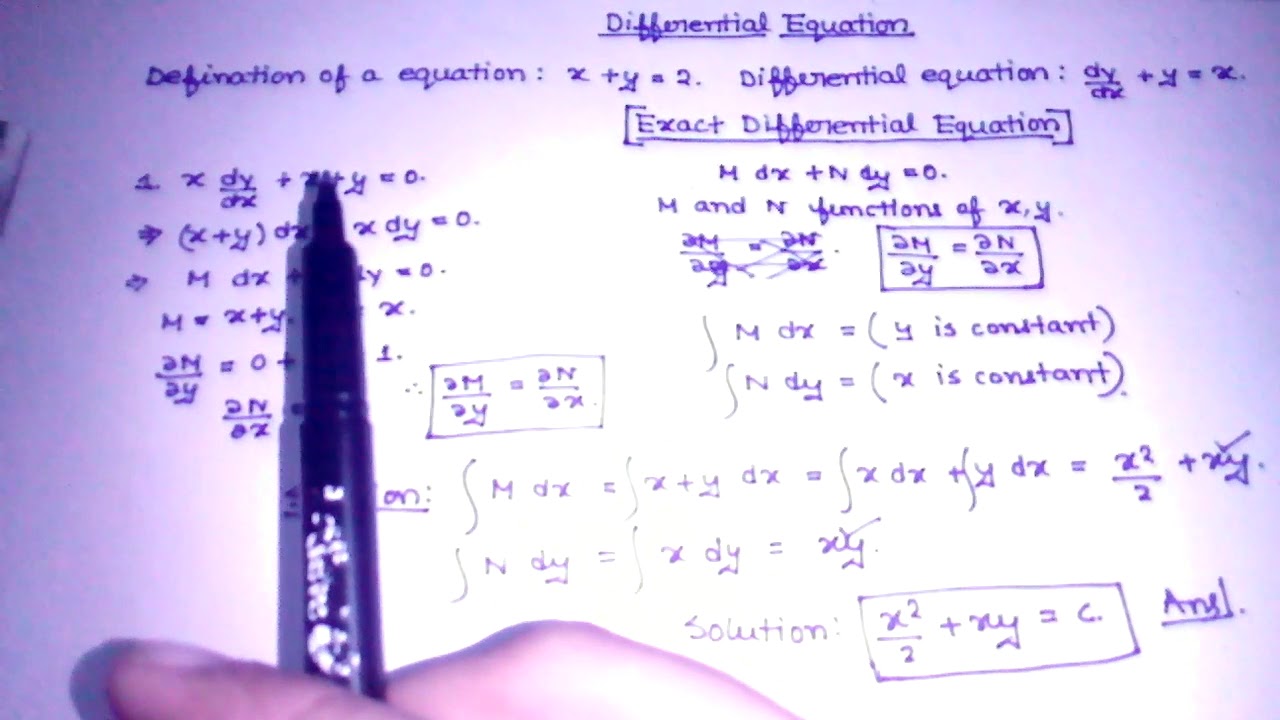 Differential Equation
Defination of a equation: x + y = 2. Differential equation: dy/dx + y = x.
[Exact Differential Equation]
1. x dy/dx + x+y = 0.
⇒ (x+y) dx x dy = 0.
⇒ M dx + dy = 0.
M = x+y. x.
∂M/∂y = 0 + 1.
∂N/∂x =
∴ ∂M/∂y = ∂N/∂x.
M dx + N dy = 0.
M and N functions of x, y.
∂M/∂y = ∂N/∂x. ∂M/∂y = ∂N/∂x
∫ M dx = (y is constant)
∫ N dy = (x is constant).
on: ∫ M dx = ∫ x+y dx = ∫ x dx + ∫ y dx = x²/2 + xy.
∫ N dy = ∫ x dy = xy.
Solution: x²/2 + xy = C. Ans.